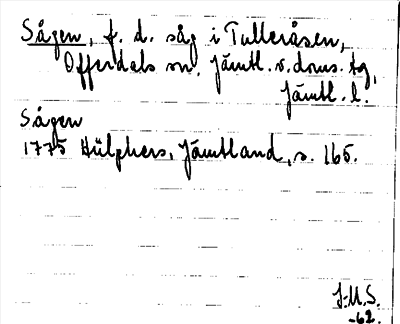 Sågen, f. d. såg i Tulleråsen,
Offerdals sn, Jämtl. v. doms. tg,
Jämtl. l.
Sågen
1775 Hülphers, Jämtland, s. 165.
J.M.S.
-62.